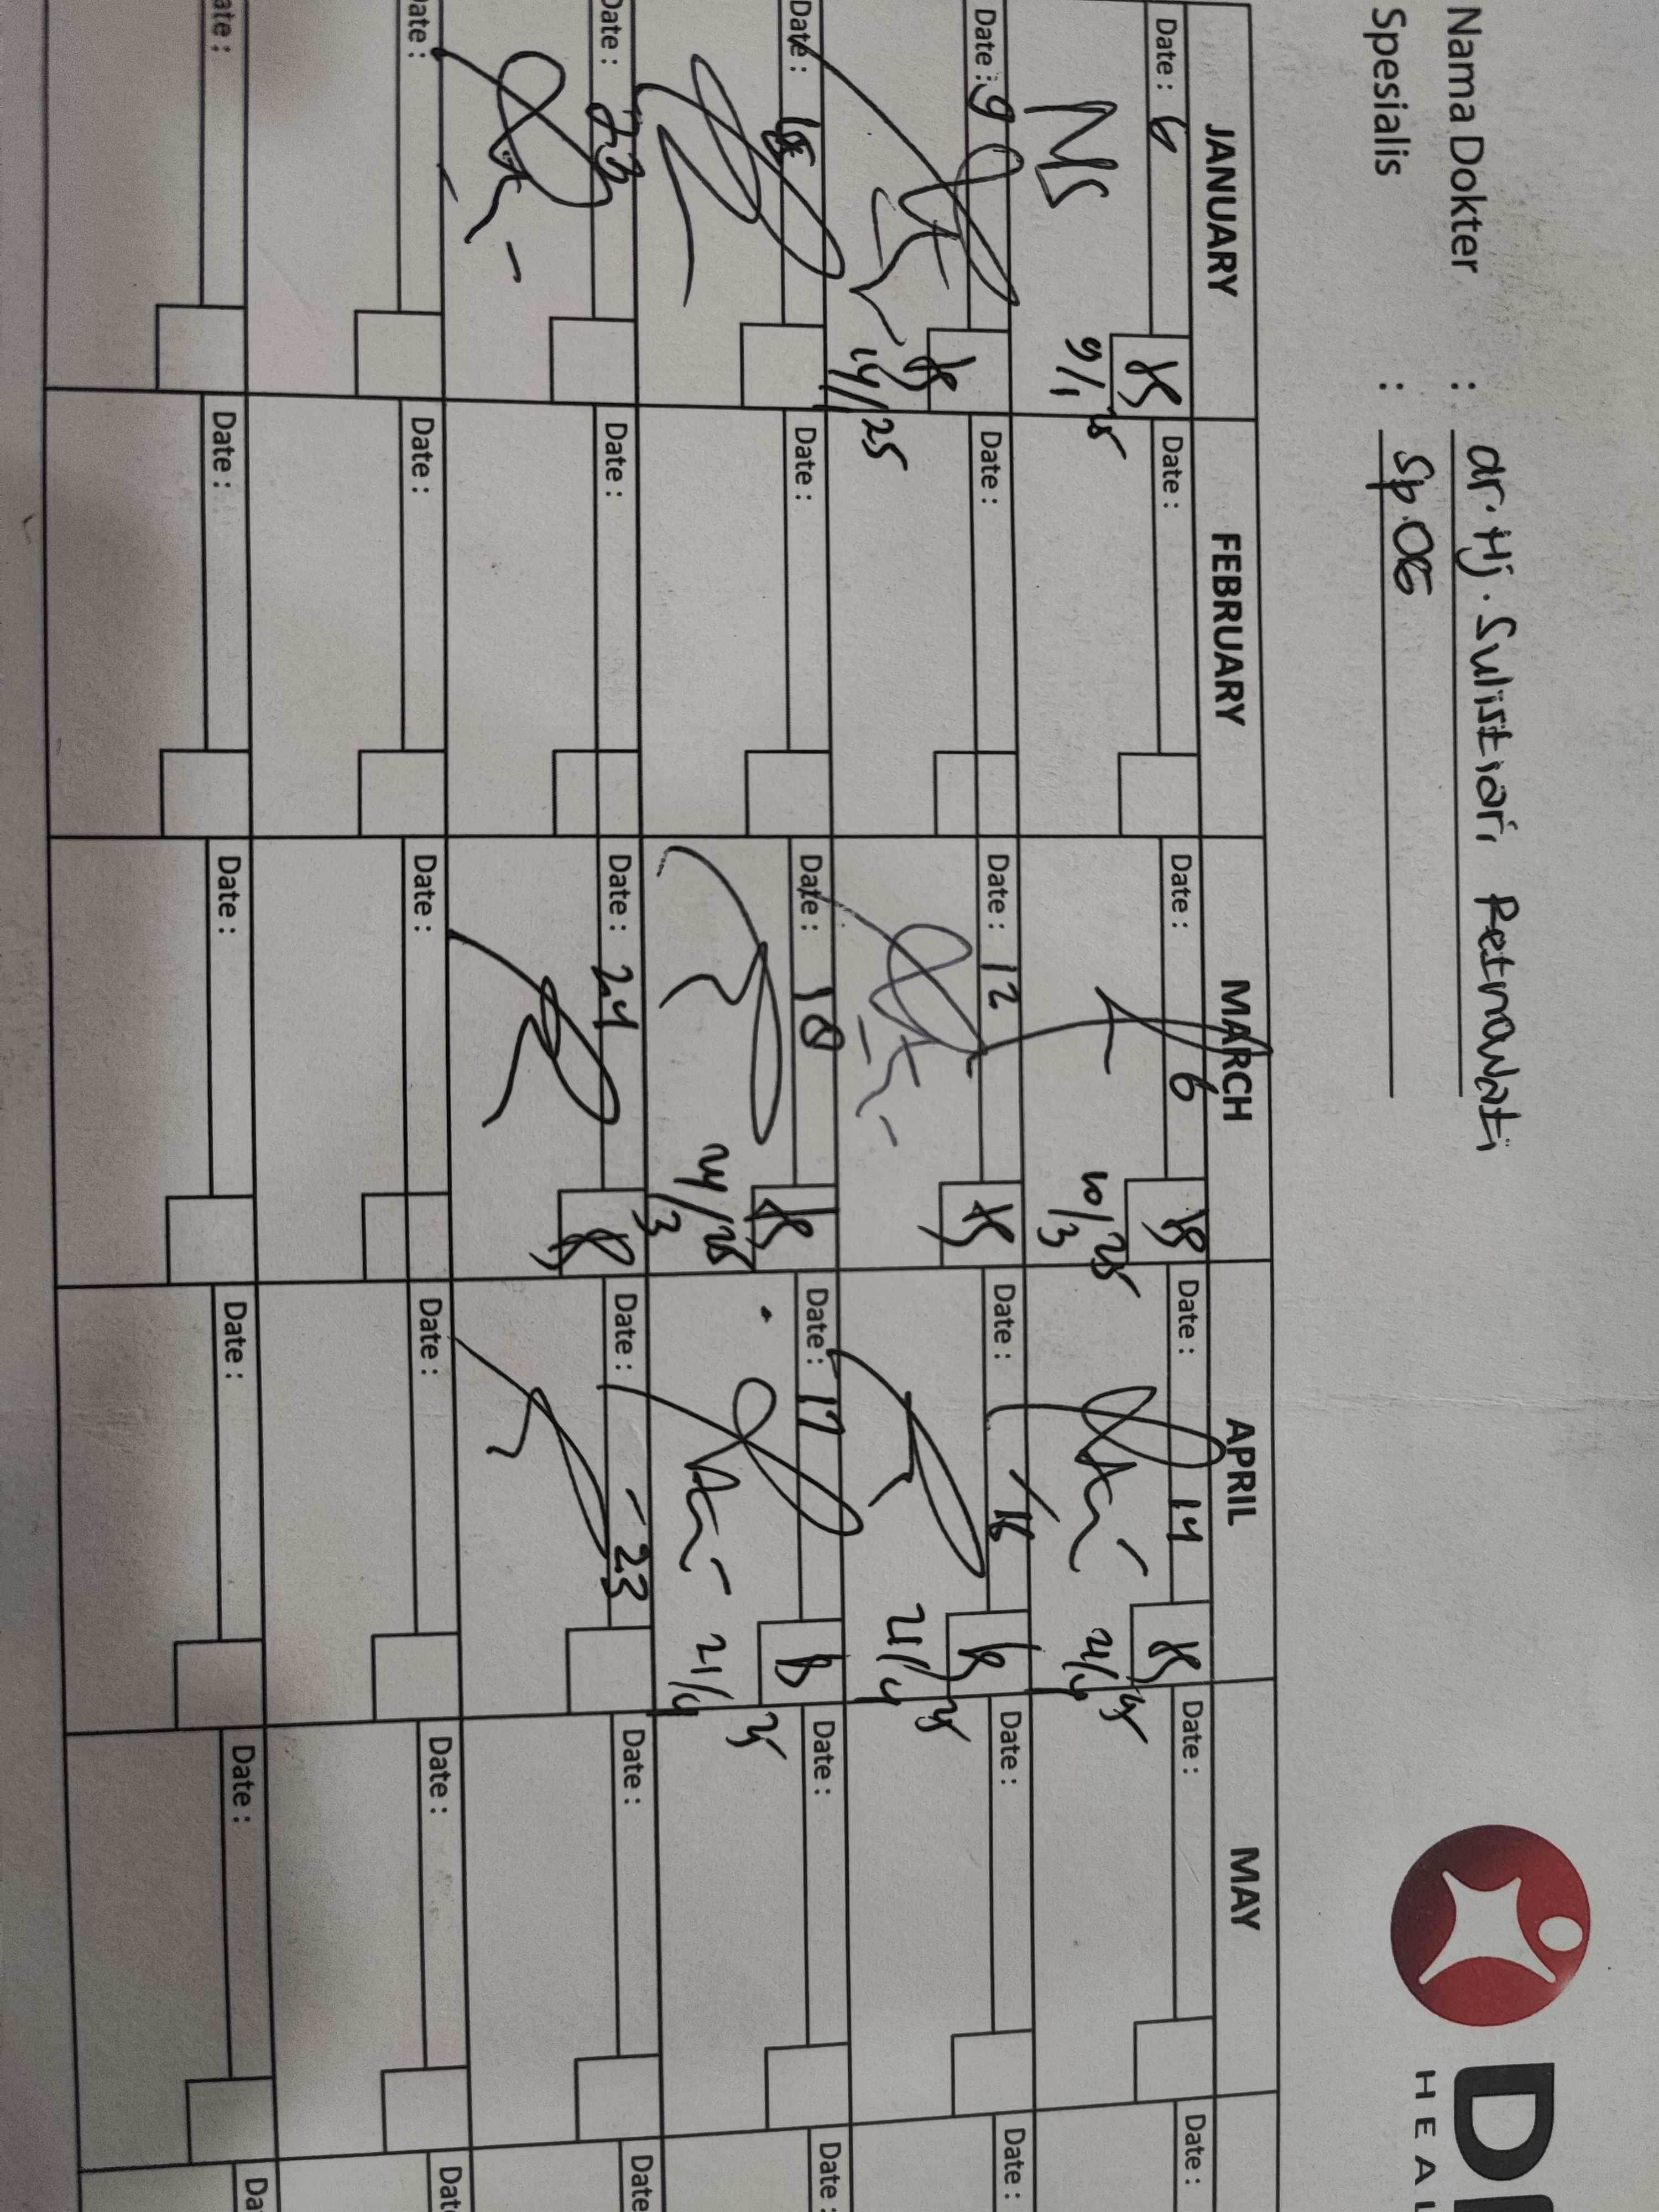 Nama Dokter : dr. Hj. Sulistiari Retnowati
Spesialis : Sp.OG
HEAL
JANUARY FEBRUARY MARCH APRIL MAY
Date : 6 Date : Date : 6 Date : 14 Date : Date :
9/1 25 10/3 25 21/4 25
Date : 9 Date : Date : 12 Date : 16 Date : Date :
14/25 21/4 25
Date : Date : Date : 18 Date : 17 Date : Date :
24/3 25 21/4 25
Date : 23 Date : Date : 24 Date : 23 Date : Date :
Date : Date : Date : Date : Date : Date
Date : Date : Date : Date : Date : Da